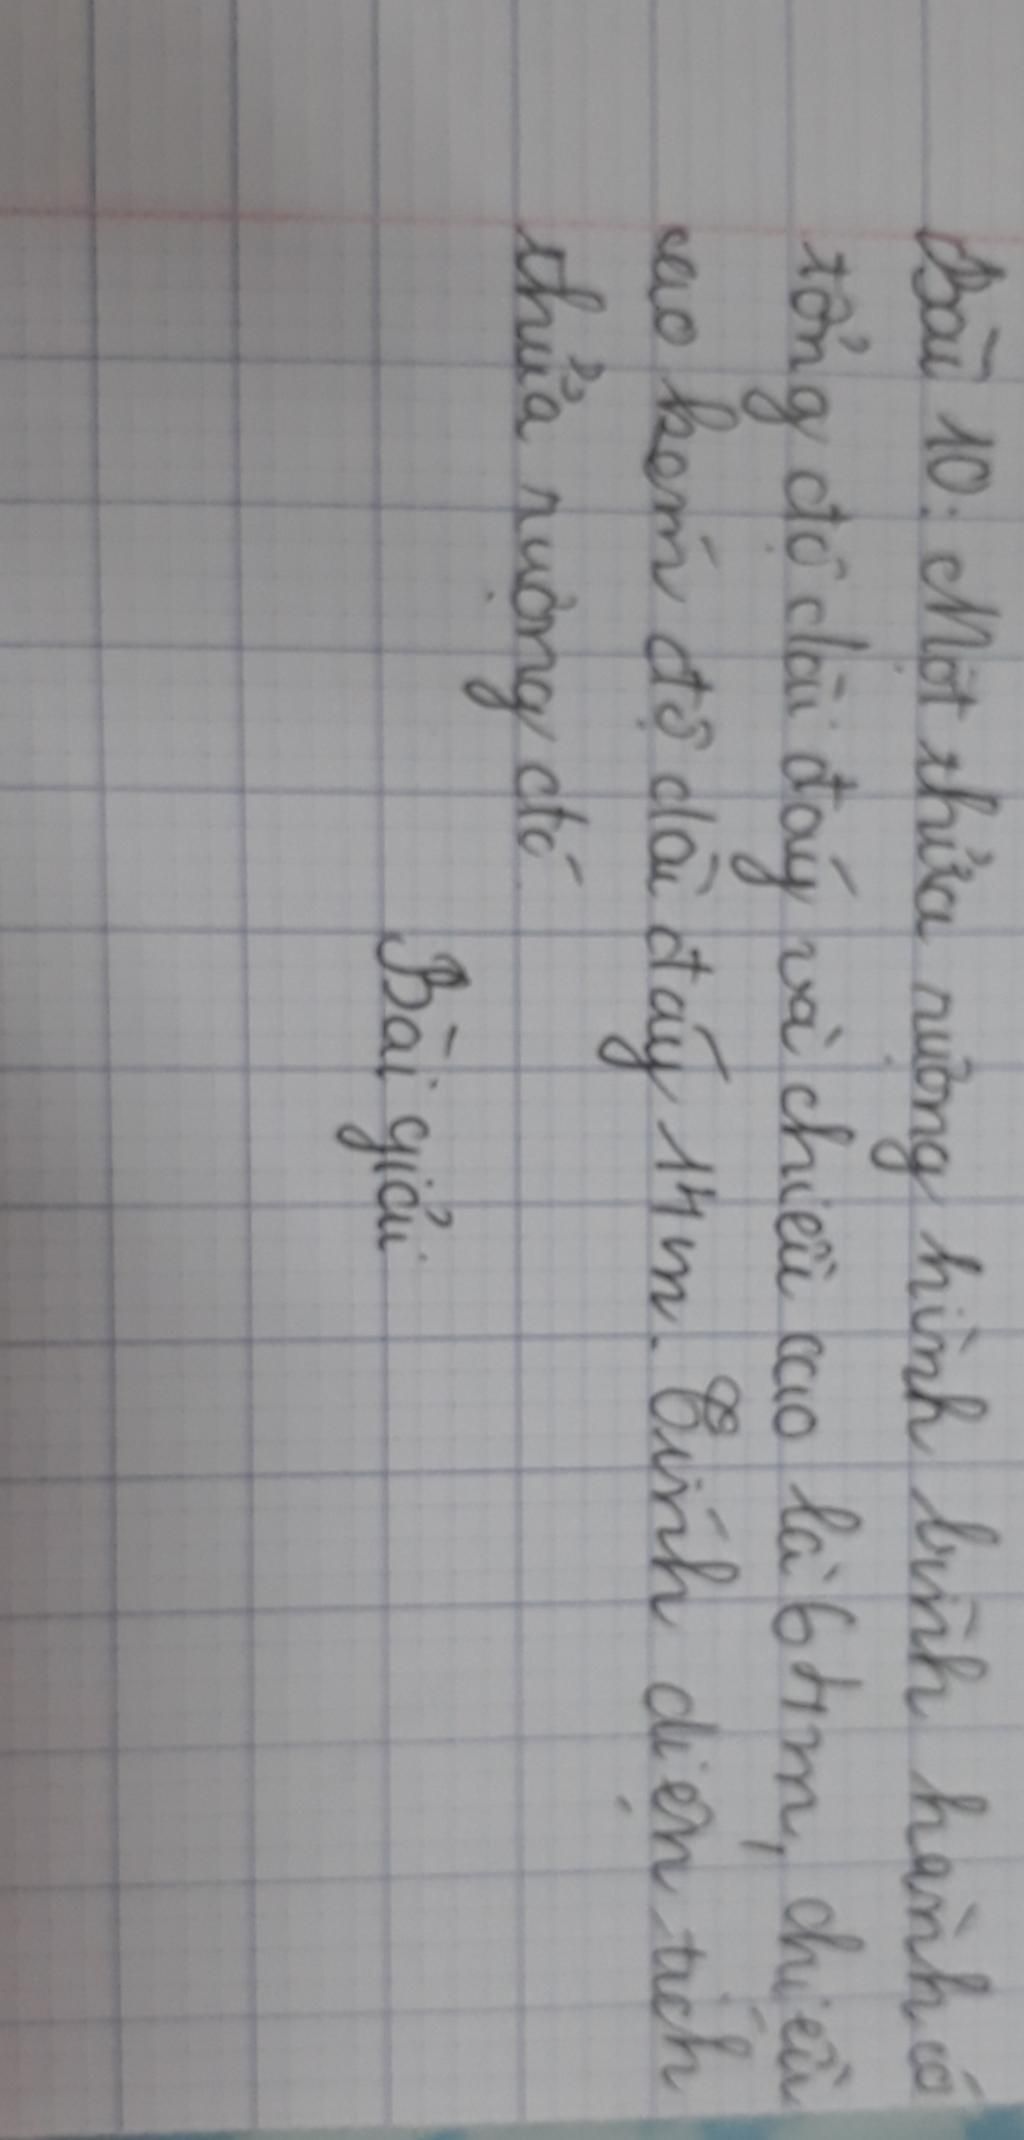 Bài 10: Một thửa ruộng hình bình hành có
tổng độ dài đáy và chiều cao là 64m, chiều
cao kem độ dài đáy 14m. Tính diện tích
thửa ruộng đó
Bài giải